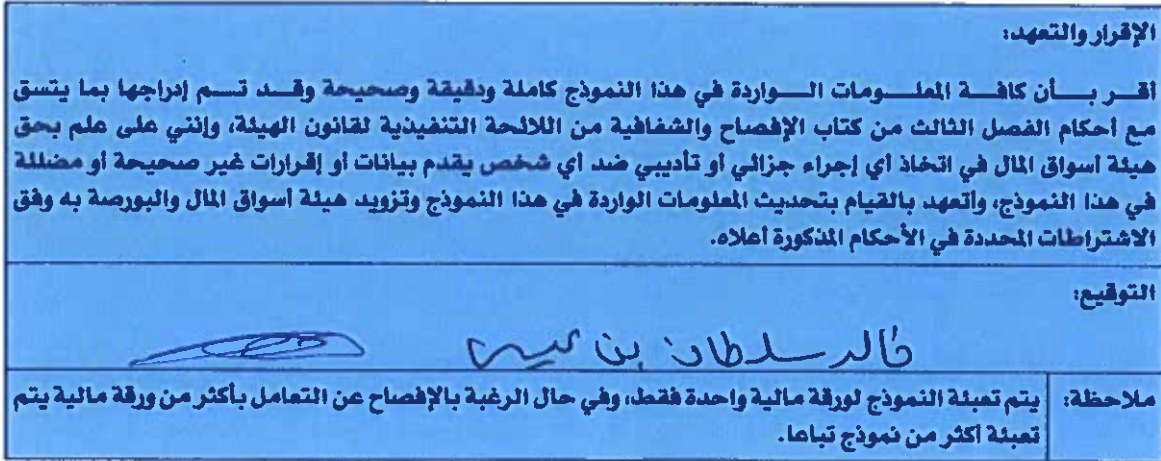 الإقرار والتعهد:
أقر بأن كافة المعلومات الواردة في هذا النموذج كاملة ودقيقة وصحيحة وقد تم إدراجها بما يتسق
مع أحكام الفصل الثالث من كتاب الإفصاح والشفافية من اللائحة التنفيذية لقانون الهيئة، وإنني على علم بحق
هيئة أسواق المال في اتخاذ أي إجراء جزائي أو تأديبي ضد أي شخص يقدم بيانات أو إقرارات غير صحيحة أو مضللة
في هذا النموذج، وأتعهد بالقيام بتحديث المعلومات الواردة في هذا النموذج وتزويد هيئة أسواق المال والبورصة به وفق
الاشتراطات المحددة في الأحكام المذكورة أعلاه.
التوقيع:
خالد سلطان بن عيسى
ملاحظة: يتم تعبئة النموذج لورقة مالية واحدة فقط، وفي حال الرغبة بالإفصاح عن التعامل بأكثر من ورقة مالية يتم
تعبئة أكثر من نموذج تباعا.